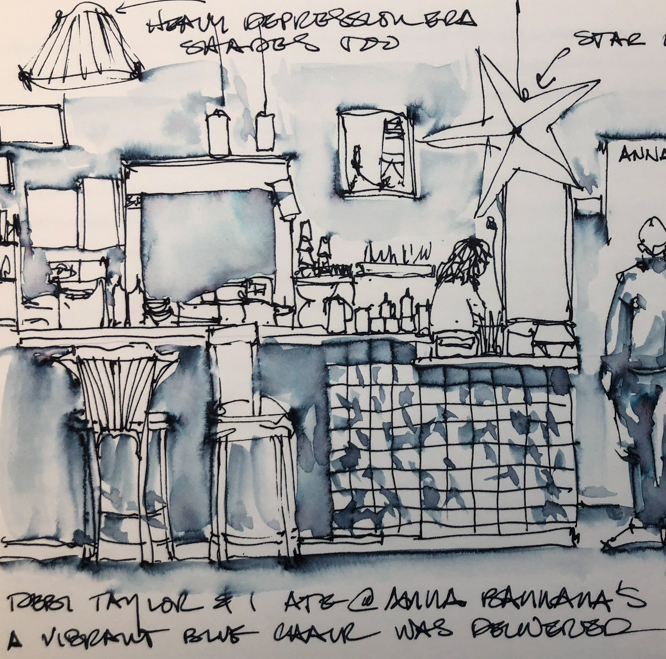 HEAVY DEPRESSION ERA
SHADES TOO
STAR
ANNA
DEBBI TAYLOR & I ATE @ ANNA BANNANA'S
A VIBRANT BLUE CHAIR WAS DELIVERED